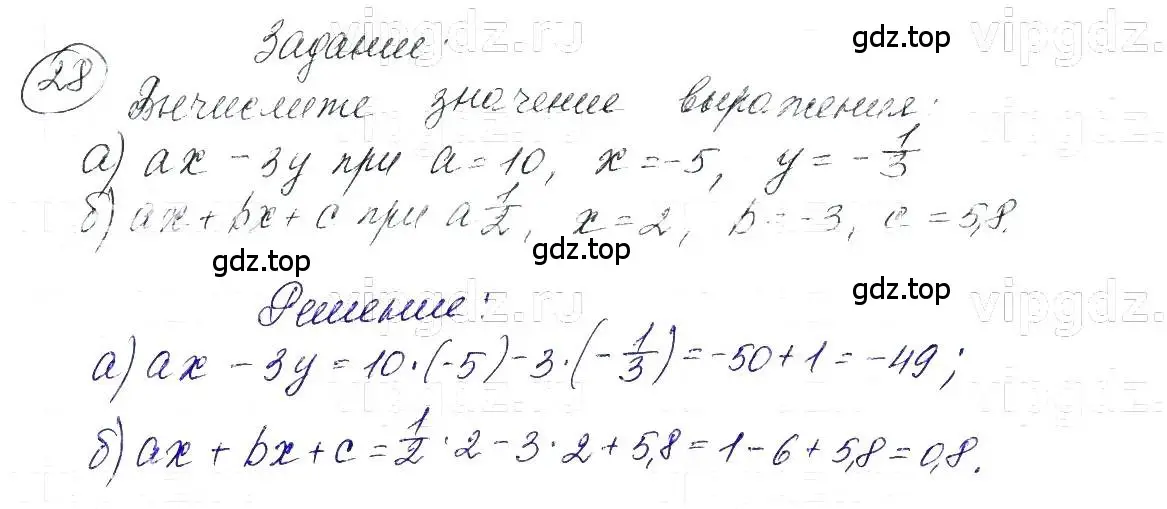 vipgdz.ru
Задание:
gdz.top
28
Вычислите значение выражения:
а) ax - 3y при a = 10, x = -5, y = -1/3
vipgdz.
б) ax + bx + c при a 1/2, x = 2, b = -3, c = 5,8.
gdz.top gdz.top
vipgdz.ru
Решение:
gdz.top
vipgdz.
а) ax - 3y = 10·(-5) - 3·(-1/3) = -50 + 1 = -49;
б) ax + bx + c = 1/2·2 - 3·2 + 5,8 = 1 - 6 + 5,8 = 0,8.